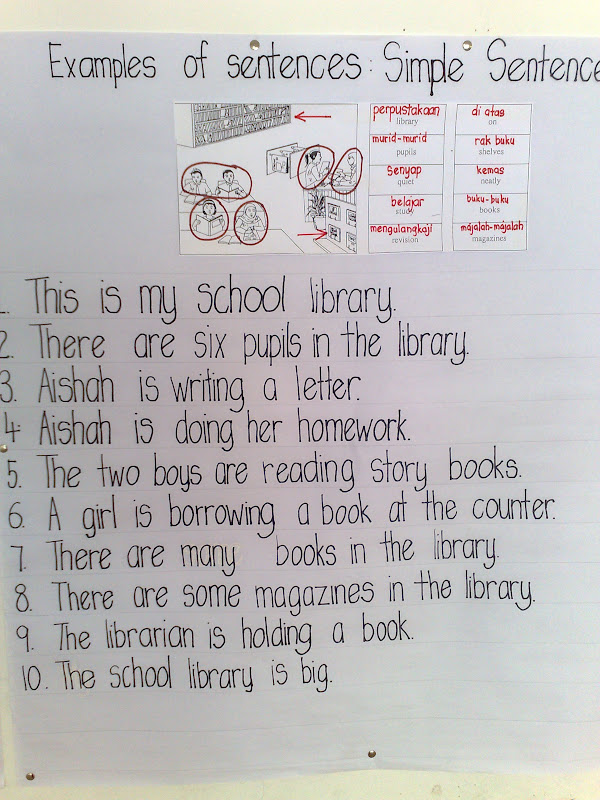 Examples of sentences: Simple Sentence
perpustakaan
library
murid-murid
pupils
senyap
quiet
belajar
study
mengulangkaji
revision
di atas
on
rak buku
shelves
kemas
neatly
buku-buku
books
majalah-majalah
magazines
1. This is my school library.
2. There are six pupils in the library.
3. Aishah is writing a letter.
4. Aishah is doing her homework.
5. The two boys are reading story books.
6. A girl is borrowing a book at the counter.
7. There are many books in the library.
8. There are some magazines in the library.
9. The librarian is holding a book.
10. The school library is big.